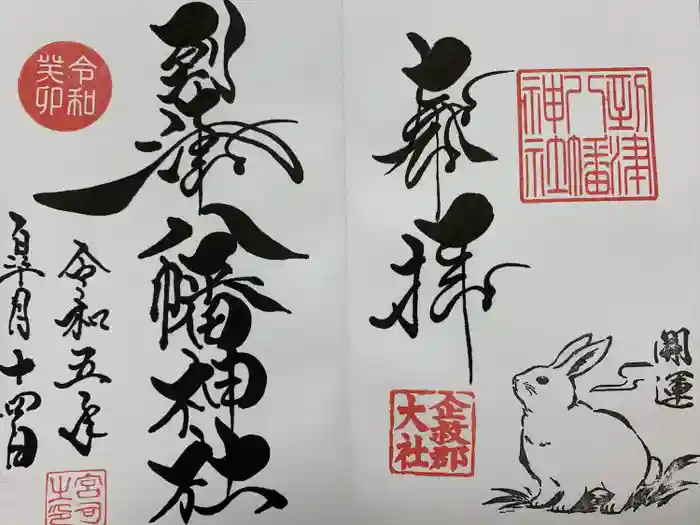 奉拝
到津
八幡
神社
企救郡
大社
開運
到津八幡神社
令和
癸卯
令和五年
皐月十四日
宮司
之印